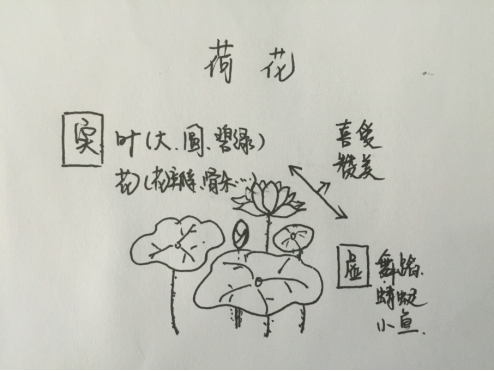 荷花
实
叶(大、圆、碧绿)
花(花瓣、骨朵…)
喜爱
赞美
虚
舞蹈、
蜻蜓
小鱼.